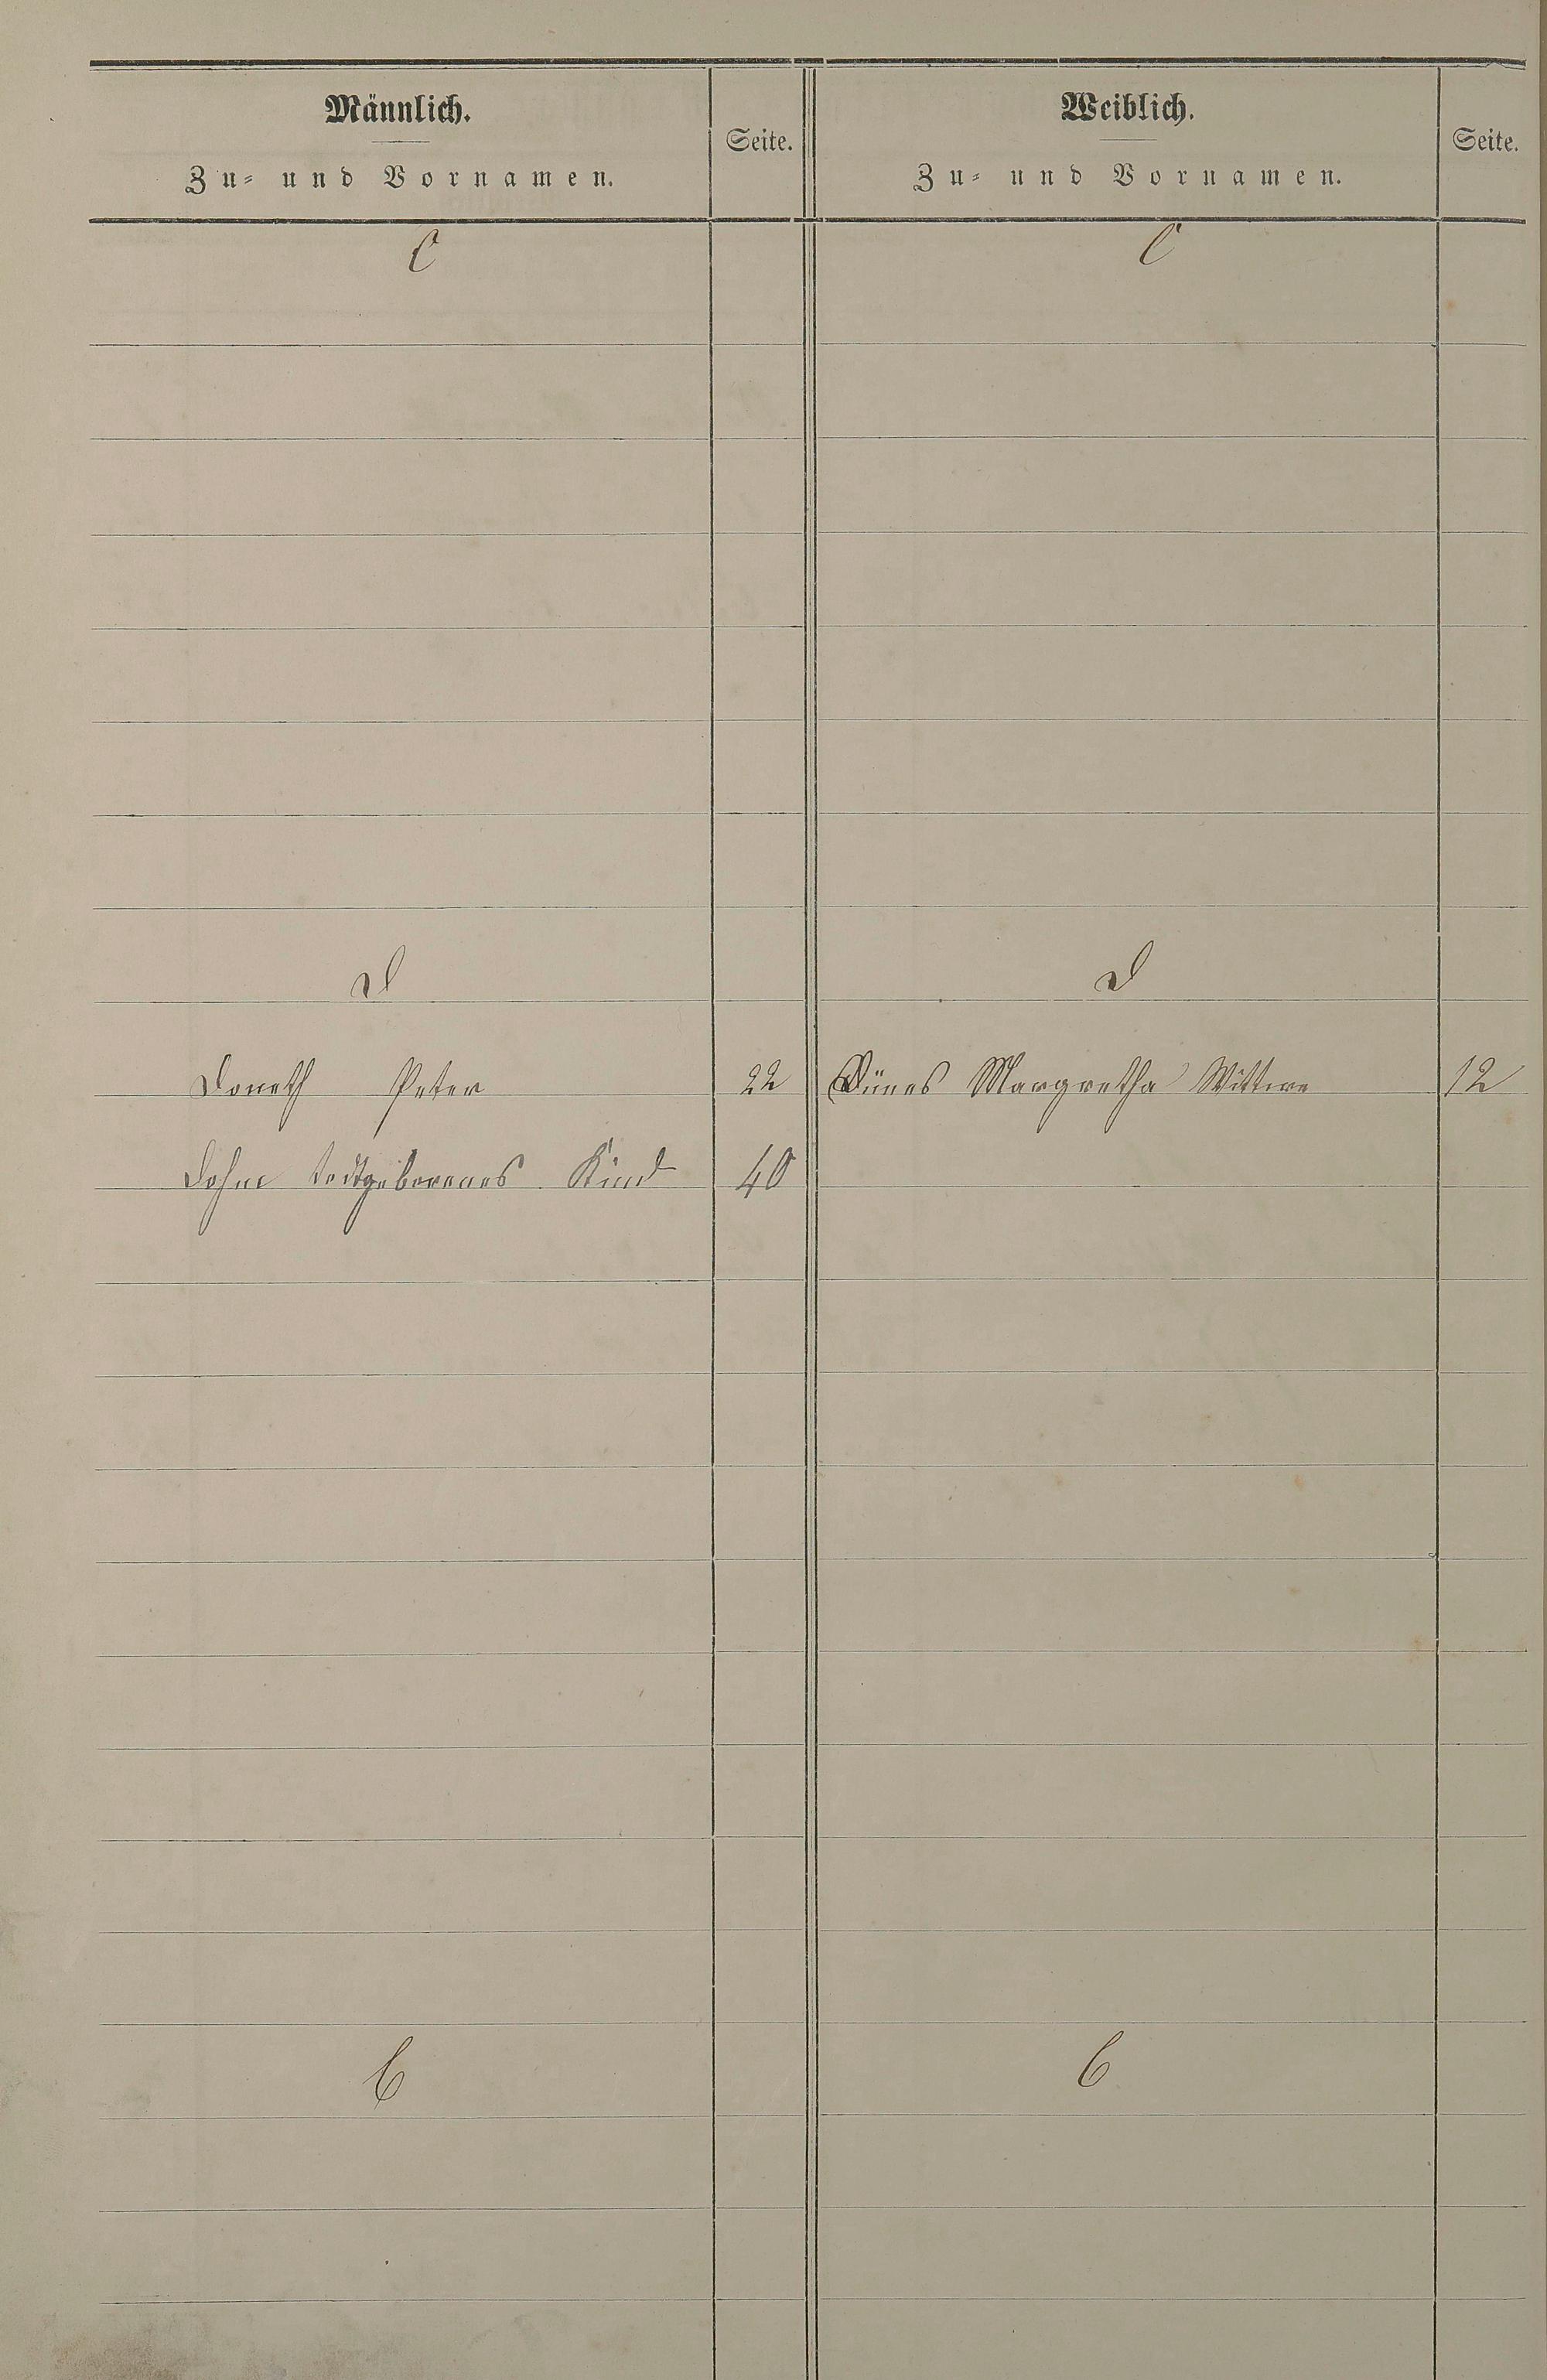 Männlich.
Zu- und Vornamen.
Seite.
Weiblich.
Zu- und Vornamen.
Seite.
C
C
D
D
Doneth Peter 22
Dünes Margretha Wittwe 12
Dohm todtgeborenes Kind 40
E
E